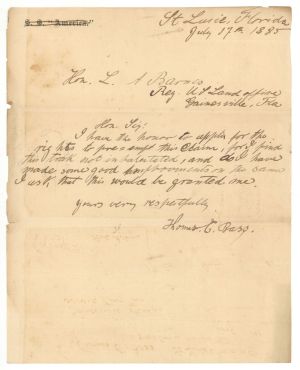 S. S. "America."
St Lucie, Florida
July 17th 1885
Hon. L. A Barnes
Reg. US Land office
Gainesville, Fla
Hon. Sir:
I have the honor to apply for the
rights to pre=empt this Claim, for I find
this track not inhabitated, and as I have
made some good improvements on the same
I ask that this would be granted me.
yours very respectfully
Thomas E.